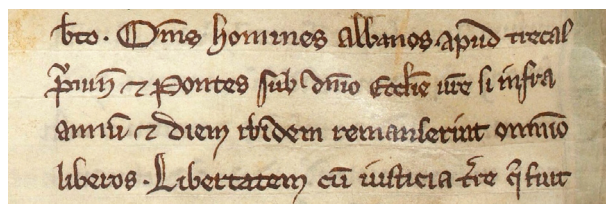 bto. Oms homines albanos apud trecas
pruin ⁊ Pontes sub dnio Ecclie ure si infra
annu ⁊ diem ibidem remanserint omnio
liberos. Libertatem cu iusticia tre q̃ fuit